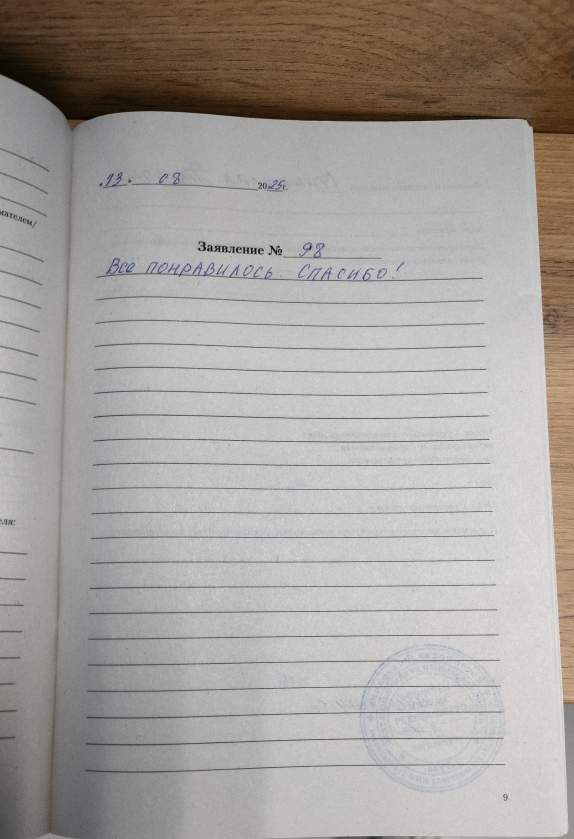 13. 08 2025г.
Заявление № 98
Все понравилось. Спасибо!
ователем/
еля:
9